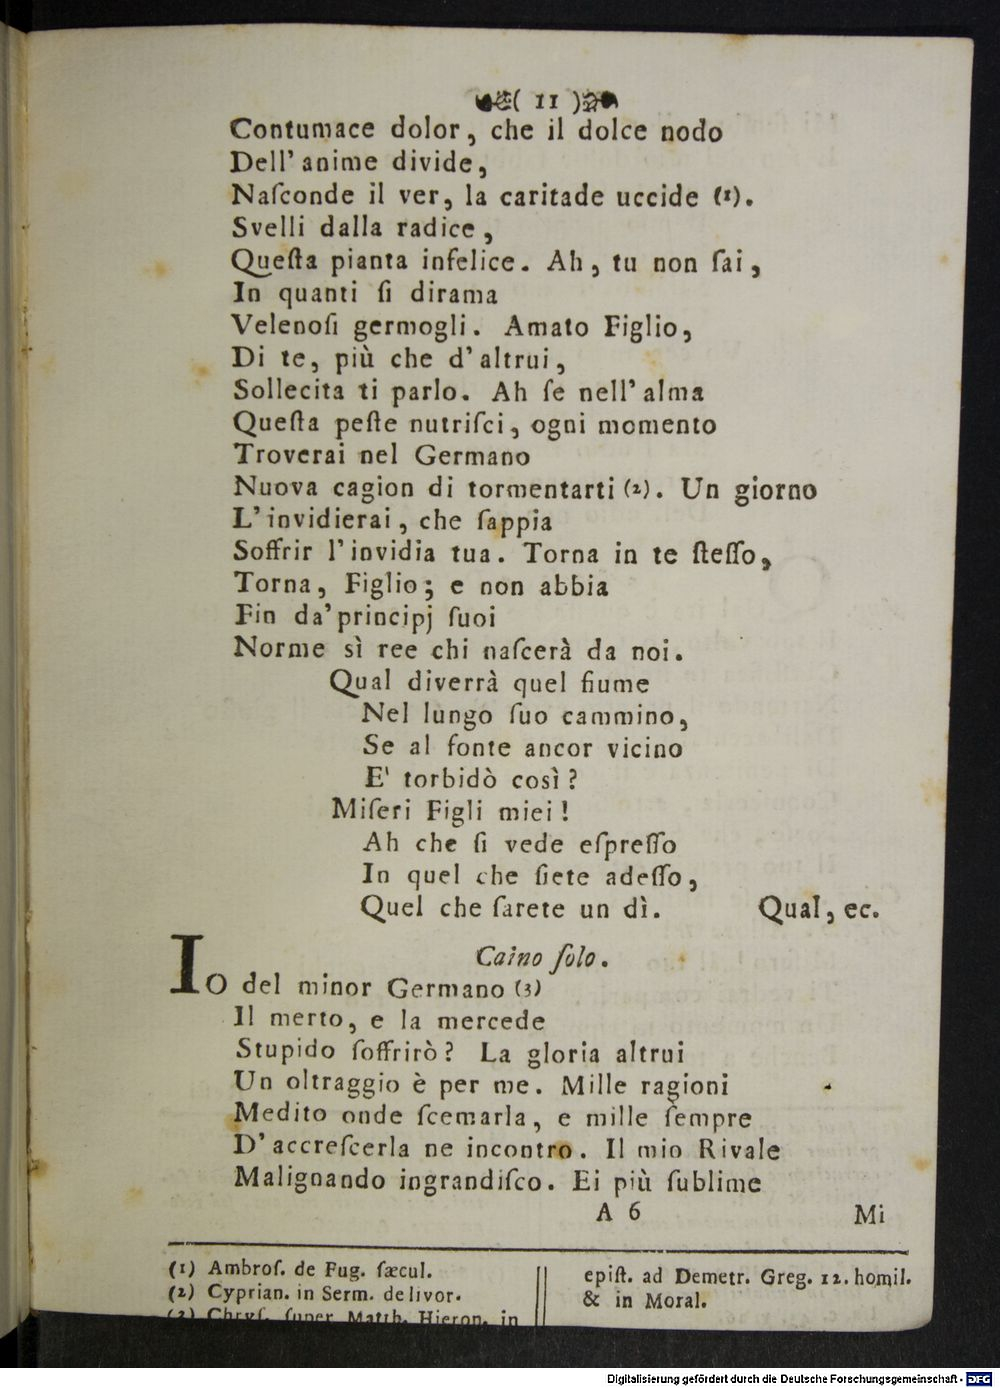 ( 11 )
Contumace dolor, che il dolce nodo
Dell' anime divide,
Naſconde il ver, la caritade uccide (1).
Svelli dalla radice,
Queſta pianta infelice. Ah, tu non ſai,
In quanti ſi dirama
Velenoſi germogli. Amato Figlio,
Di te, più che d' altrui,
Sollecita ti parlo. Ah ſe nell' alma
Queſta peſte nutriſci, ogni momento
Troverai nel Germano
Nuova cagion di tormentarti (2). Un giorno
L' invidierai, che ſappia
Soffrir l' invidia tua. Torna in te ſteſſo,
Torna, Figlio; e non abbia
Fin da' principj ſuoi
Norme sì ree chi naſcerà da noi.
Qual diverrà quel fiume
Nel lungo ſuo cammino,
Se al fonte ancor vicino
E' torbidò così?
Miſeri Figli miei!
Ah che ſi vede eſpreſſo
In quel che ſiete adeſſo,
Quel che ſarete un dì. Qual, ec.
Caino ſolo.
Io del minor Germano (3)
Il merto, e la mercede
Stupido ſoffrirò? La gloria altrui
Un oltraggio è per me. Mille ragioni
Medito onde ſcemarla, e mille ſempre
D' accreſcerla ne incontro. Il mio Rivale
Malignando ingrandiſco. Ei più ſublime
A 6 Mi
(1) Ambroſ. de Fug. ſæcul.
(2) Cyprian. in Serm. de livor.
(3) Chryſ. ſuper Matth. Hieron. in
epiſt. ad Demetr. Greg. 12. homil.
& in Moral.
Digitalisierung gefördert durch die Deutsche Forschungsgemeinschaft - DFG